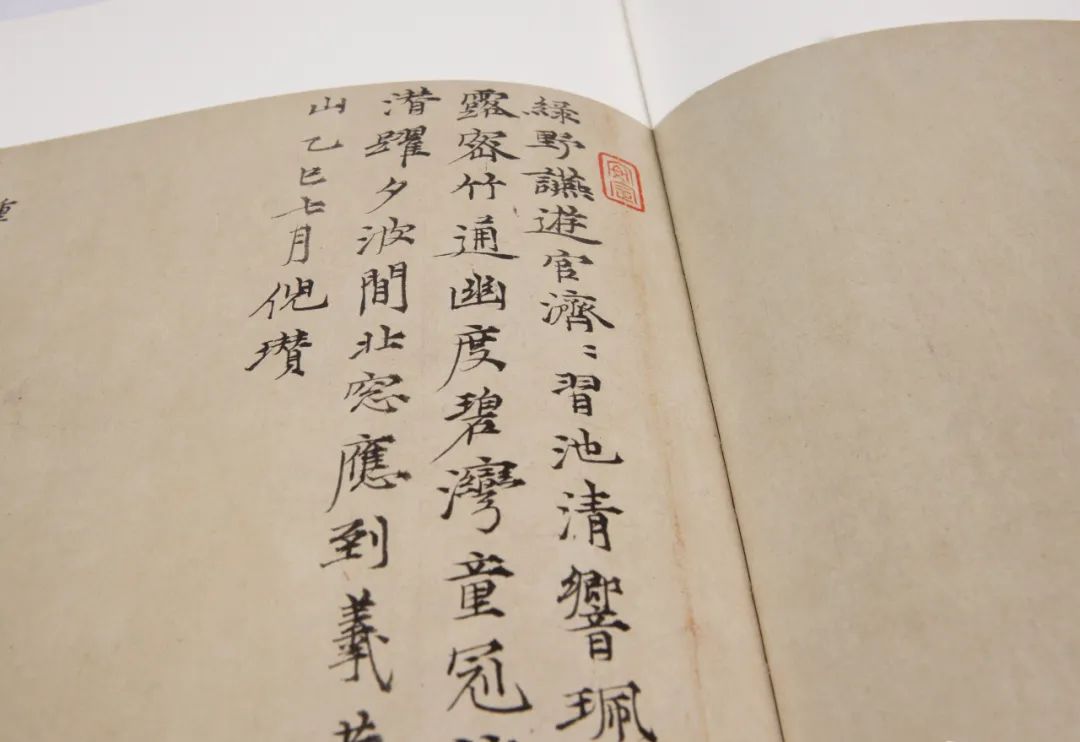 綠野讌遊官濟〻習池清響珮
露密竹通幽度碧灣童冠
潛躍夕波間北窓應到羲
山乙巳七月倪瓚